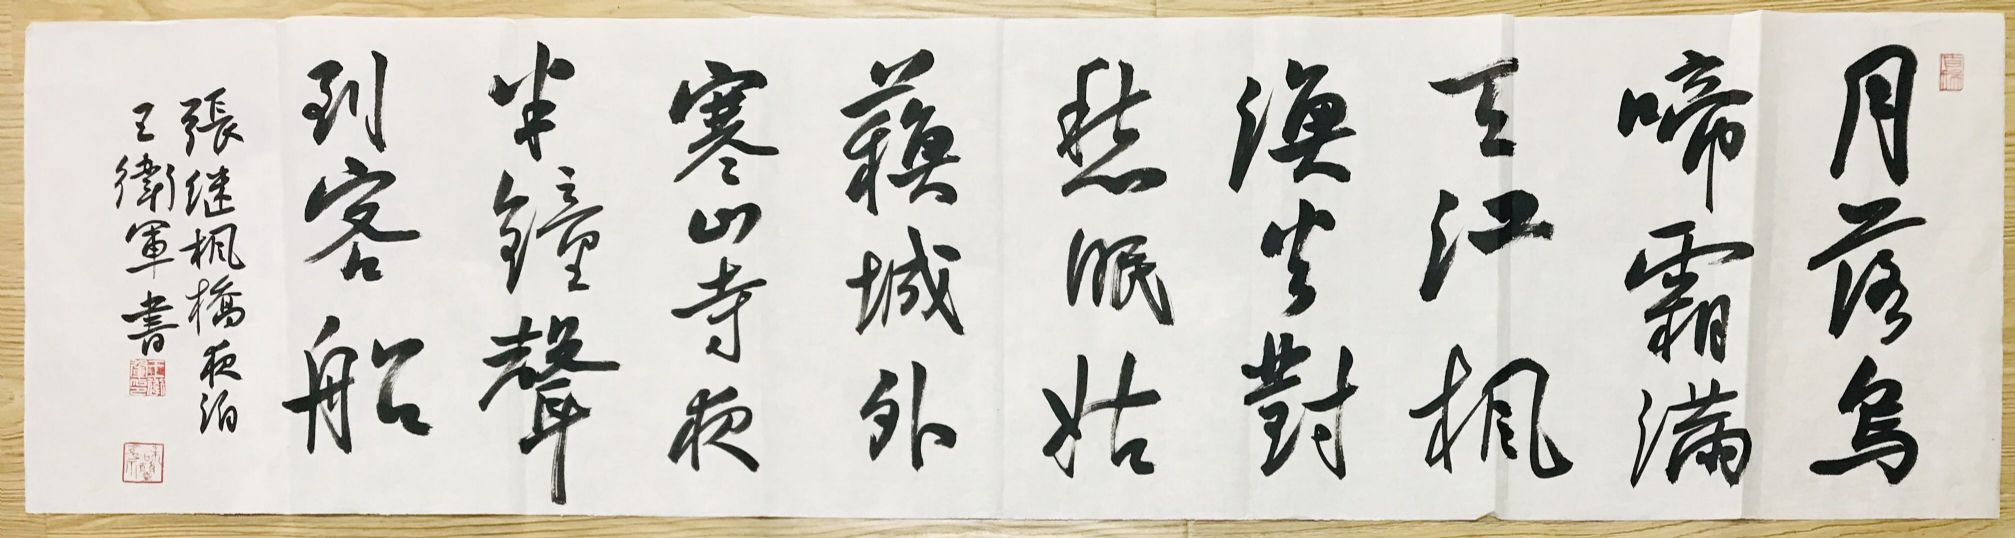 月落烏
啼霜滿
天江楓
漁火對
愁眠姑
蘇城外
寒山寺夜
半鐘聲
到客船
張继楓橋夜泊
王衛軍書